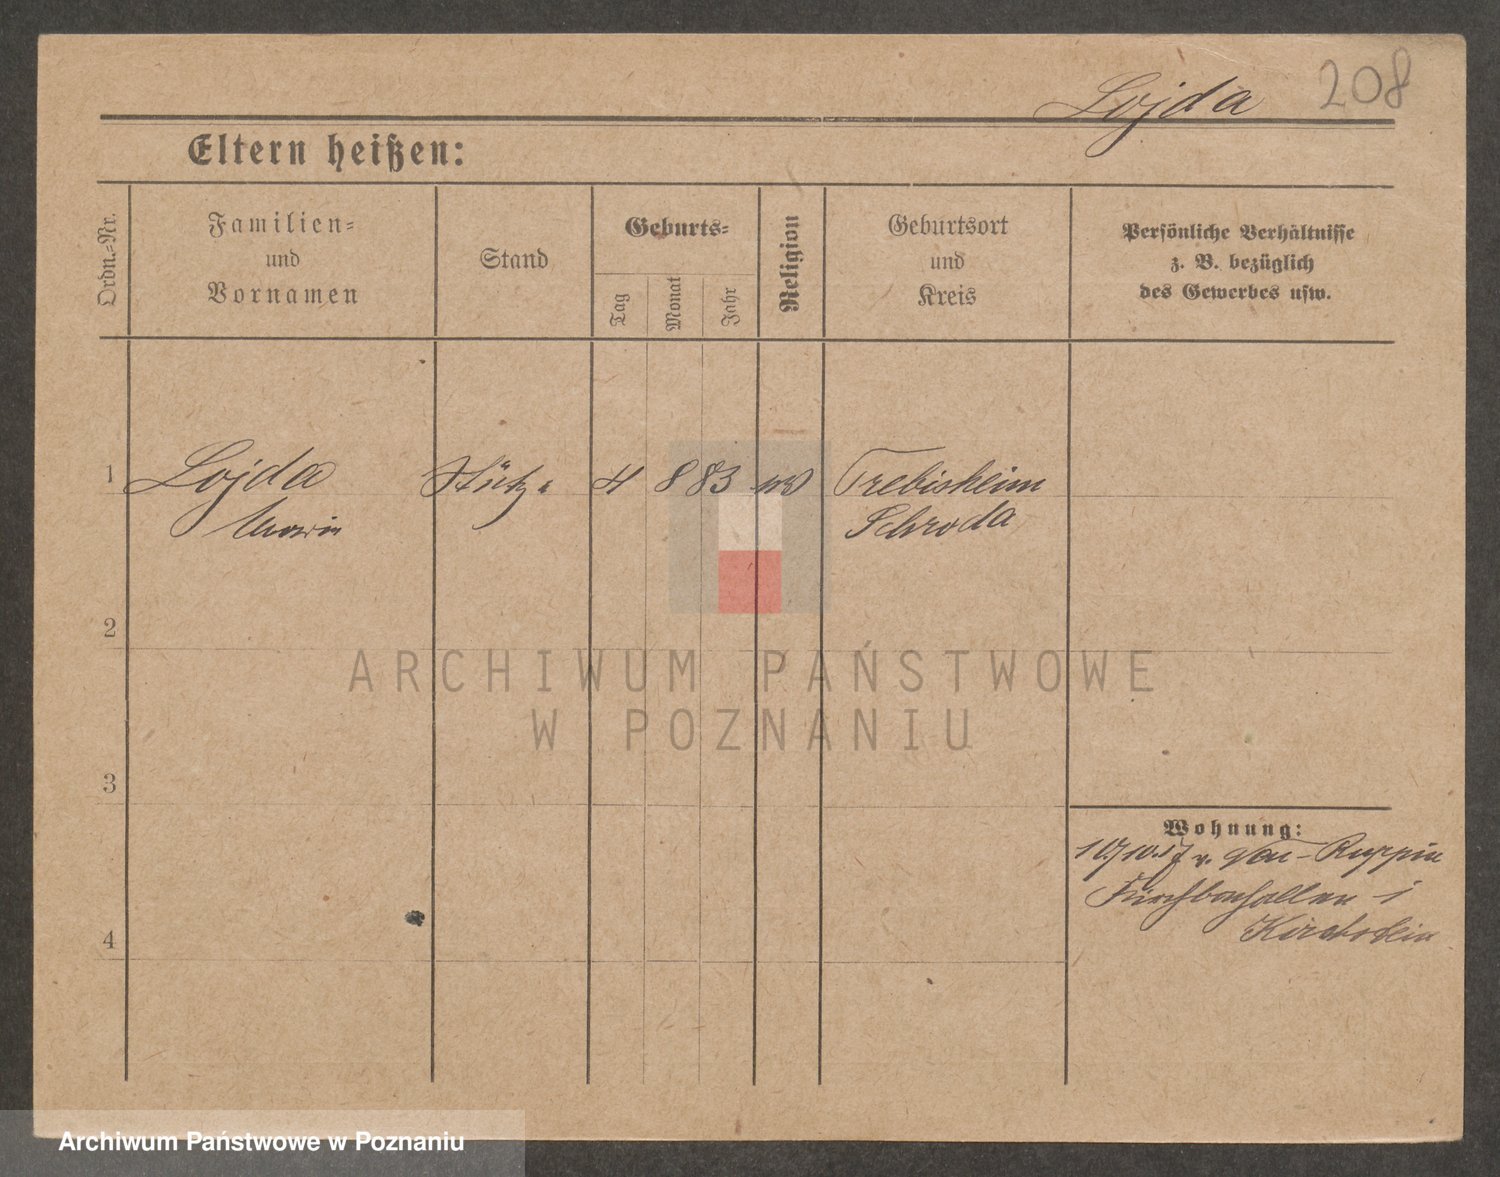 Lojda 208
Eltern heißen:
Ordn.-Nr.
Familien-
und
Vornamen
Stand
Geburts-
Tag
Monat
Jahr
Religion
Geburtsort
und
Kreis
Persönliche Verhältnisse
z. B. bezüglich
des Gewerbes usw.
1 Lojda Stütze 4 8 83 Trebisheim
Maria Schroda
2
3
4
Wohnung:
10/10.17 v. Neu-Ruppin
ARCHIWUM PAŃSTWOWE
W POZNANIU
Archiwum Państwowe w Poznaniu